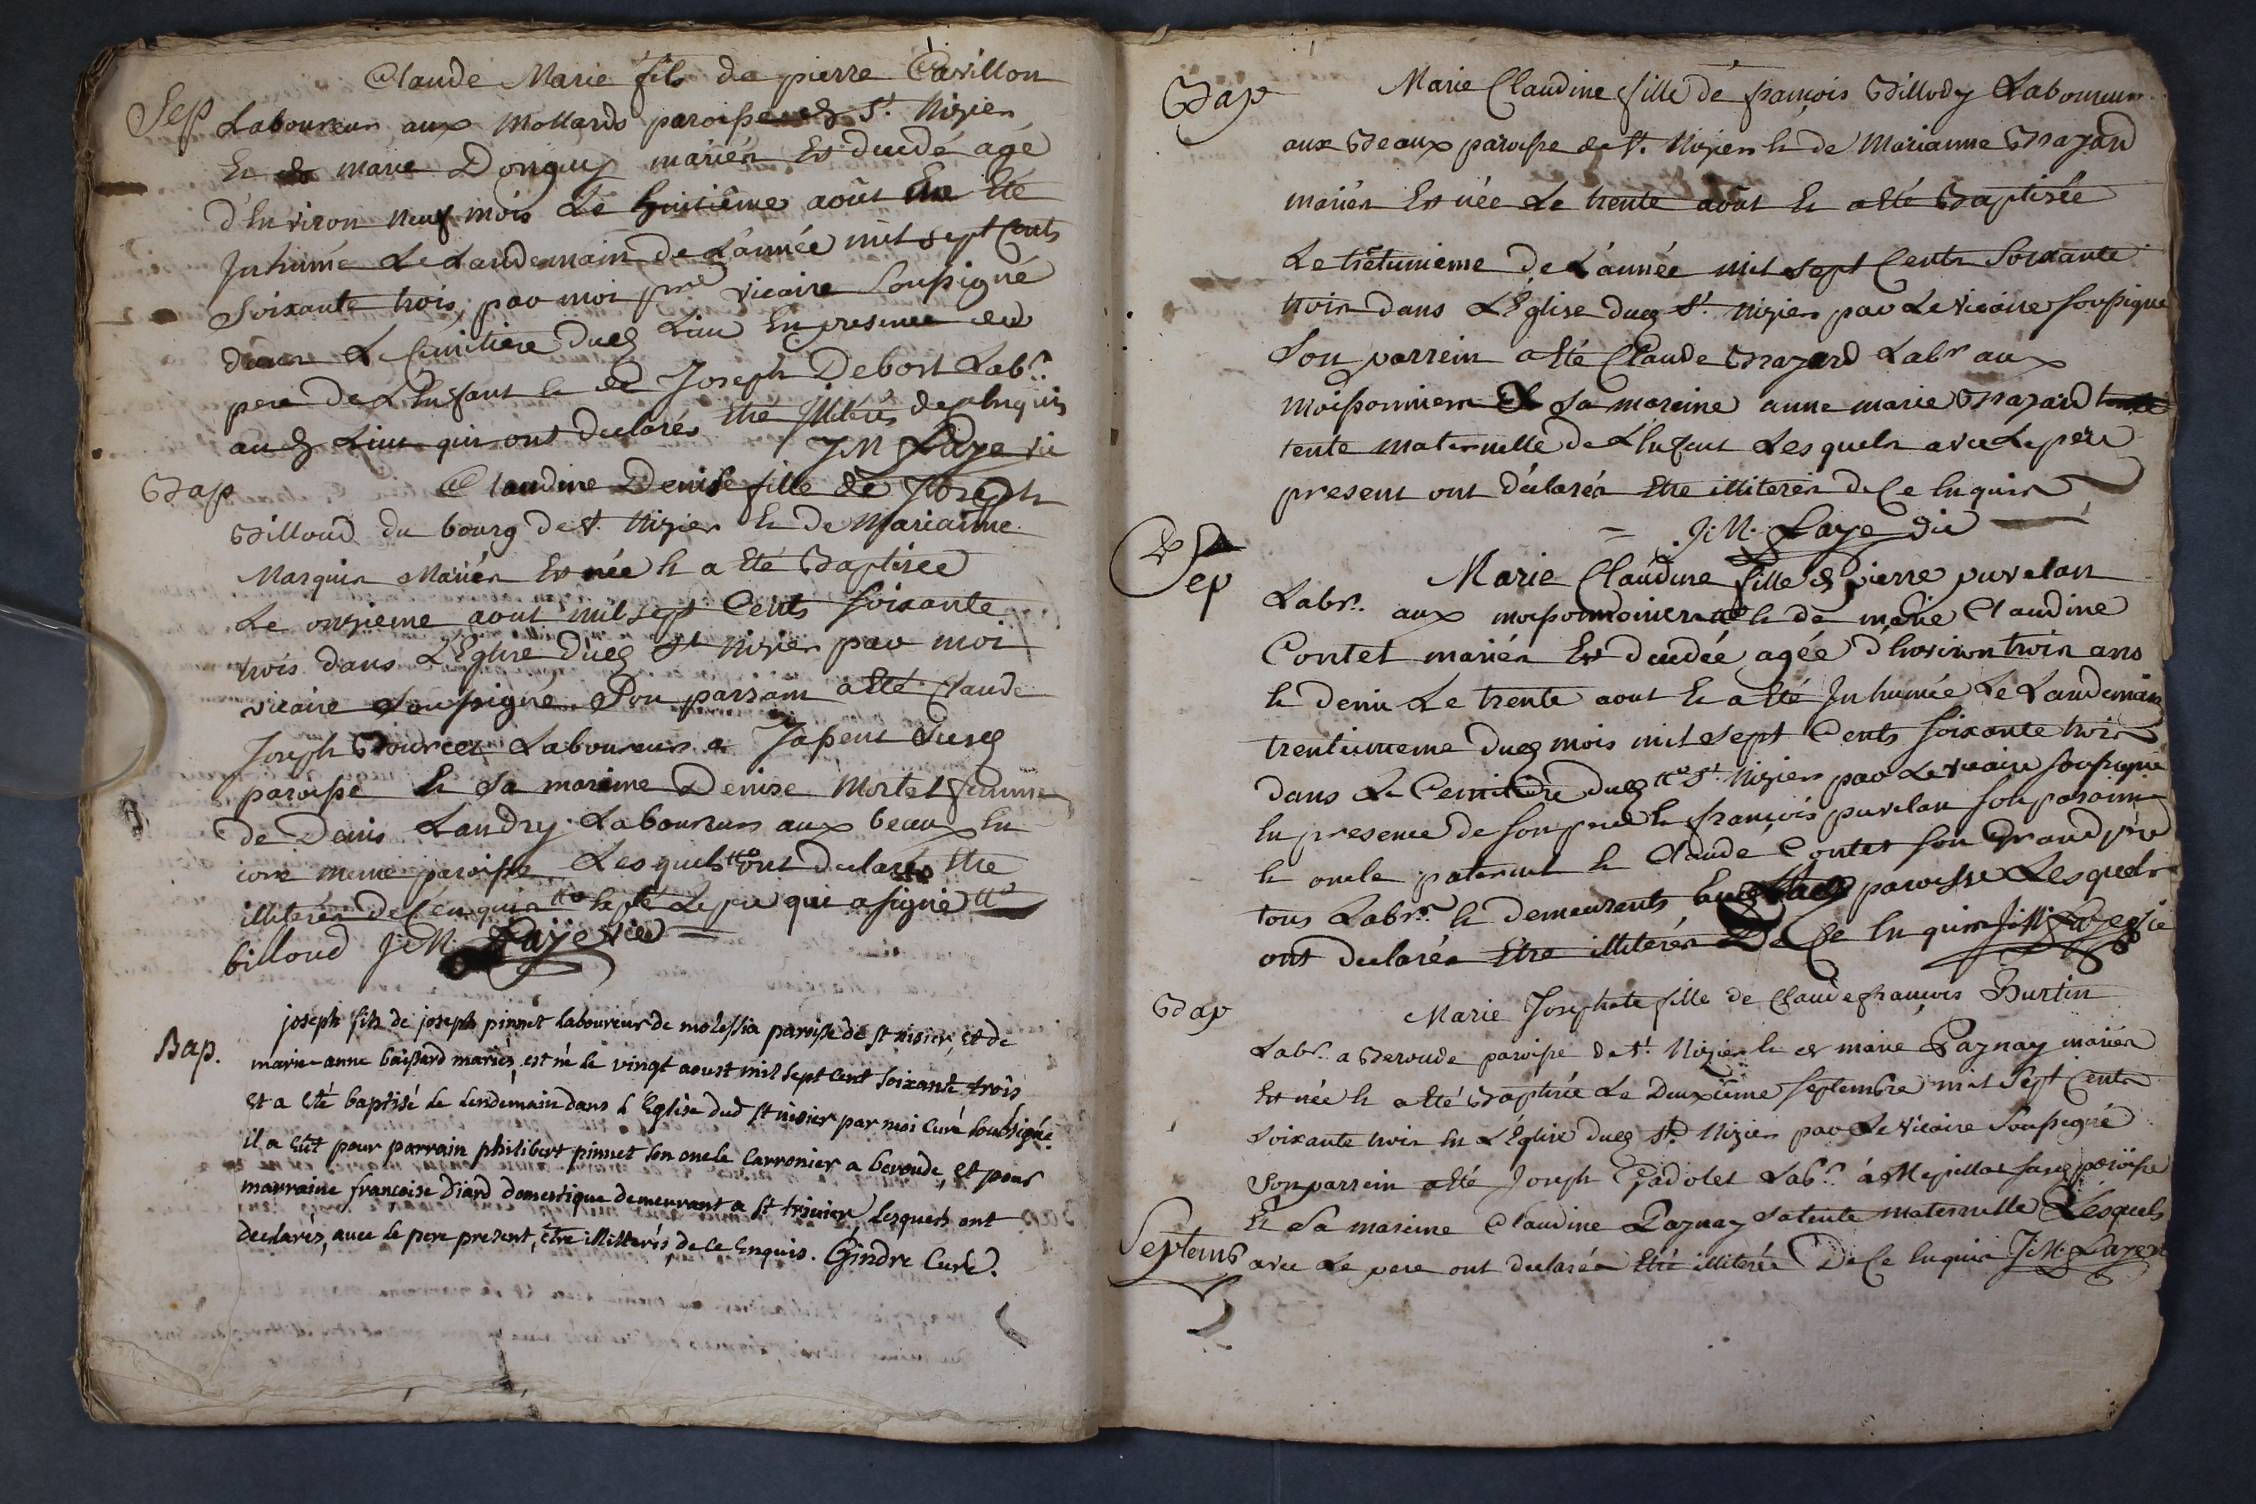 Sep
Claude Marie fils de pierre Cavillon
Laboureur aux Mollards paroisse de St. Nizier
Et de marie Donguy mariés Est decédé agé
d'Environ neuf mois Le huitième août Eté
Inhumé Le Landemain de L'année mil sept Cents
Soixante trois, par moi pre vicaire Soussigné
dans Le Cimitiere dud Lieu En presence du
pere de L'Enfant Et de Joseph Debost Labr.
aud Lieu qui ont declarés Etre Illiterés de ce Enquis
J M Laye vic
Bap
Claudine Denise fille de Joseph
Billoud du bourg de St. Nizier Et de Marianne
Marquis Mariés Est née Et a Eté Baptisée
Le onzieme aout mil sept Cents soixante
trois dans L'Eglise dud St Nizier par moi
vicaire Soussigné Son parrain a Eté Claude
Joseph Bourcet Laboureur a Japeut susd
paroisse Et Sa mareine Denise Mortel femme
de Denis Landry Laboureur aux beaux En
core meme paroisse Lesquels ont declarés Etre
illiterés de Ce enquis Le pere qui a signé
billoud J: M: Laye vic
Bap.
joseph fils de joseph pinnet laboureur de molessia paroisse de st nisier, et de
marie-anne baissard mariés, est né le vingt aoust mil sept cent soixante trois
et a eté baptisé le lendemain dans l'Eglise dud st nisier par moi curé soussigné
il a eût pour parrain philibert pinnet son oncle carronier a beroude, et pour
marraine francoise diard domestique demeurant a st trivier, lesquels ont
declarés, avec le pere present, être illitterés, de ce enquis. Gindre Curé.
Bap
Marie Claudine fille de françois Billody Laboureur
aux Beaux paroisse de St. Nizier Et de Marianne Bazard
mariés Est née Le trente août Et a Eté Baptisée
Le trétunième de L'année mil sept Cents Soixante
trois dans L'Eglise dud St. Nizier par Le vicaire soussigné
Son parrein a Eté Claude Bazard Labr aux
Moissonniers Et Sa mareine anne marie Bazard
tente maternelle de L'Enfant Lesquels avec Le pere
present ont déclarés Etre illiterés de Ce Enquis
J: M: Laye vic
Sep
Marie Claudine fille de pierre puvelan
Labr. aux moissonniers Et de marie Claudine
Contet mariés Est decédée agée d'Environ trois ans
Et demi Le trente aout Et a Eté Inhumée Le Landemain
trentunieme dud mois mil sept Cents soixante trois
dans Le Cemitiere dud St. Nizier par Le vicaire soussigné
En presence de son pere Et françois puvelan son parain
Et oncle paternel Et Claude Contet son Grand pere
tous Labrs. Et demeurants paroisse Lesquels
ont declarés Etre illiterés De Ce Enquis J: M: Laye vic
Bap
Marie Josephte fille de Claude françois Burtin
Labr. a Beroude paroisse de St. Nizier Et de marie Paznay mariés
Est née Et a Eté Baptisée Le Deuxième septembre mil Sept Cents
Soixante trois En L'Eglise dud St. Nizier par Le vicaire Soussigné
Son parrein a Eté Joseph Gadolet Labr. à Mepillat susd paroisse
Et Sa mareine Claudine Paznay Sa tente maternelle Lesquels
Septemb
avec Le pere ont declarés Etre illiterés De Ce Enquis J: M: Laye